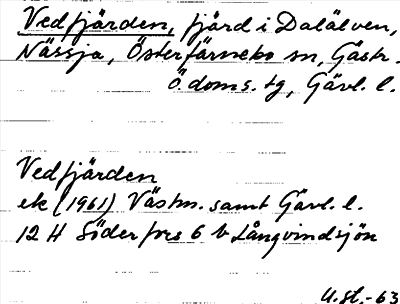 Vedfjärden, fjärd i Dalälven,
Nässja, Österfärnebo sn, Gästr.
Ö. doms. tg, Gävl. l.
Vedfjärden
ek (1961) Västm. samt Gävl. l.
12 H Söderfors 6 b Långvindsjön
U.St.-63